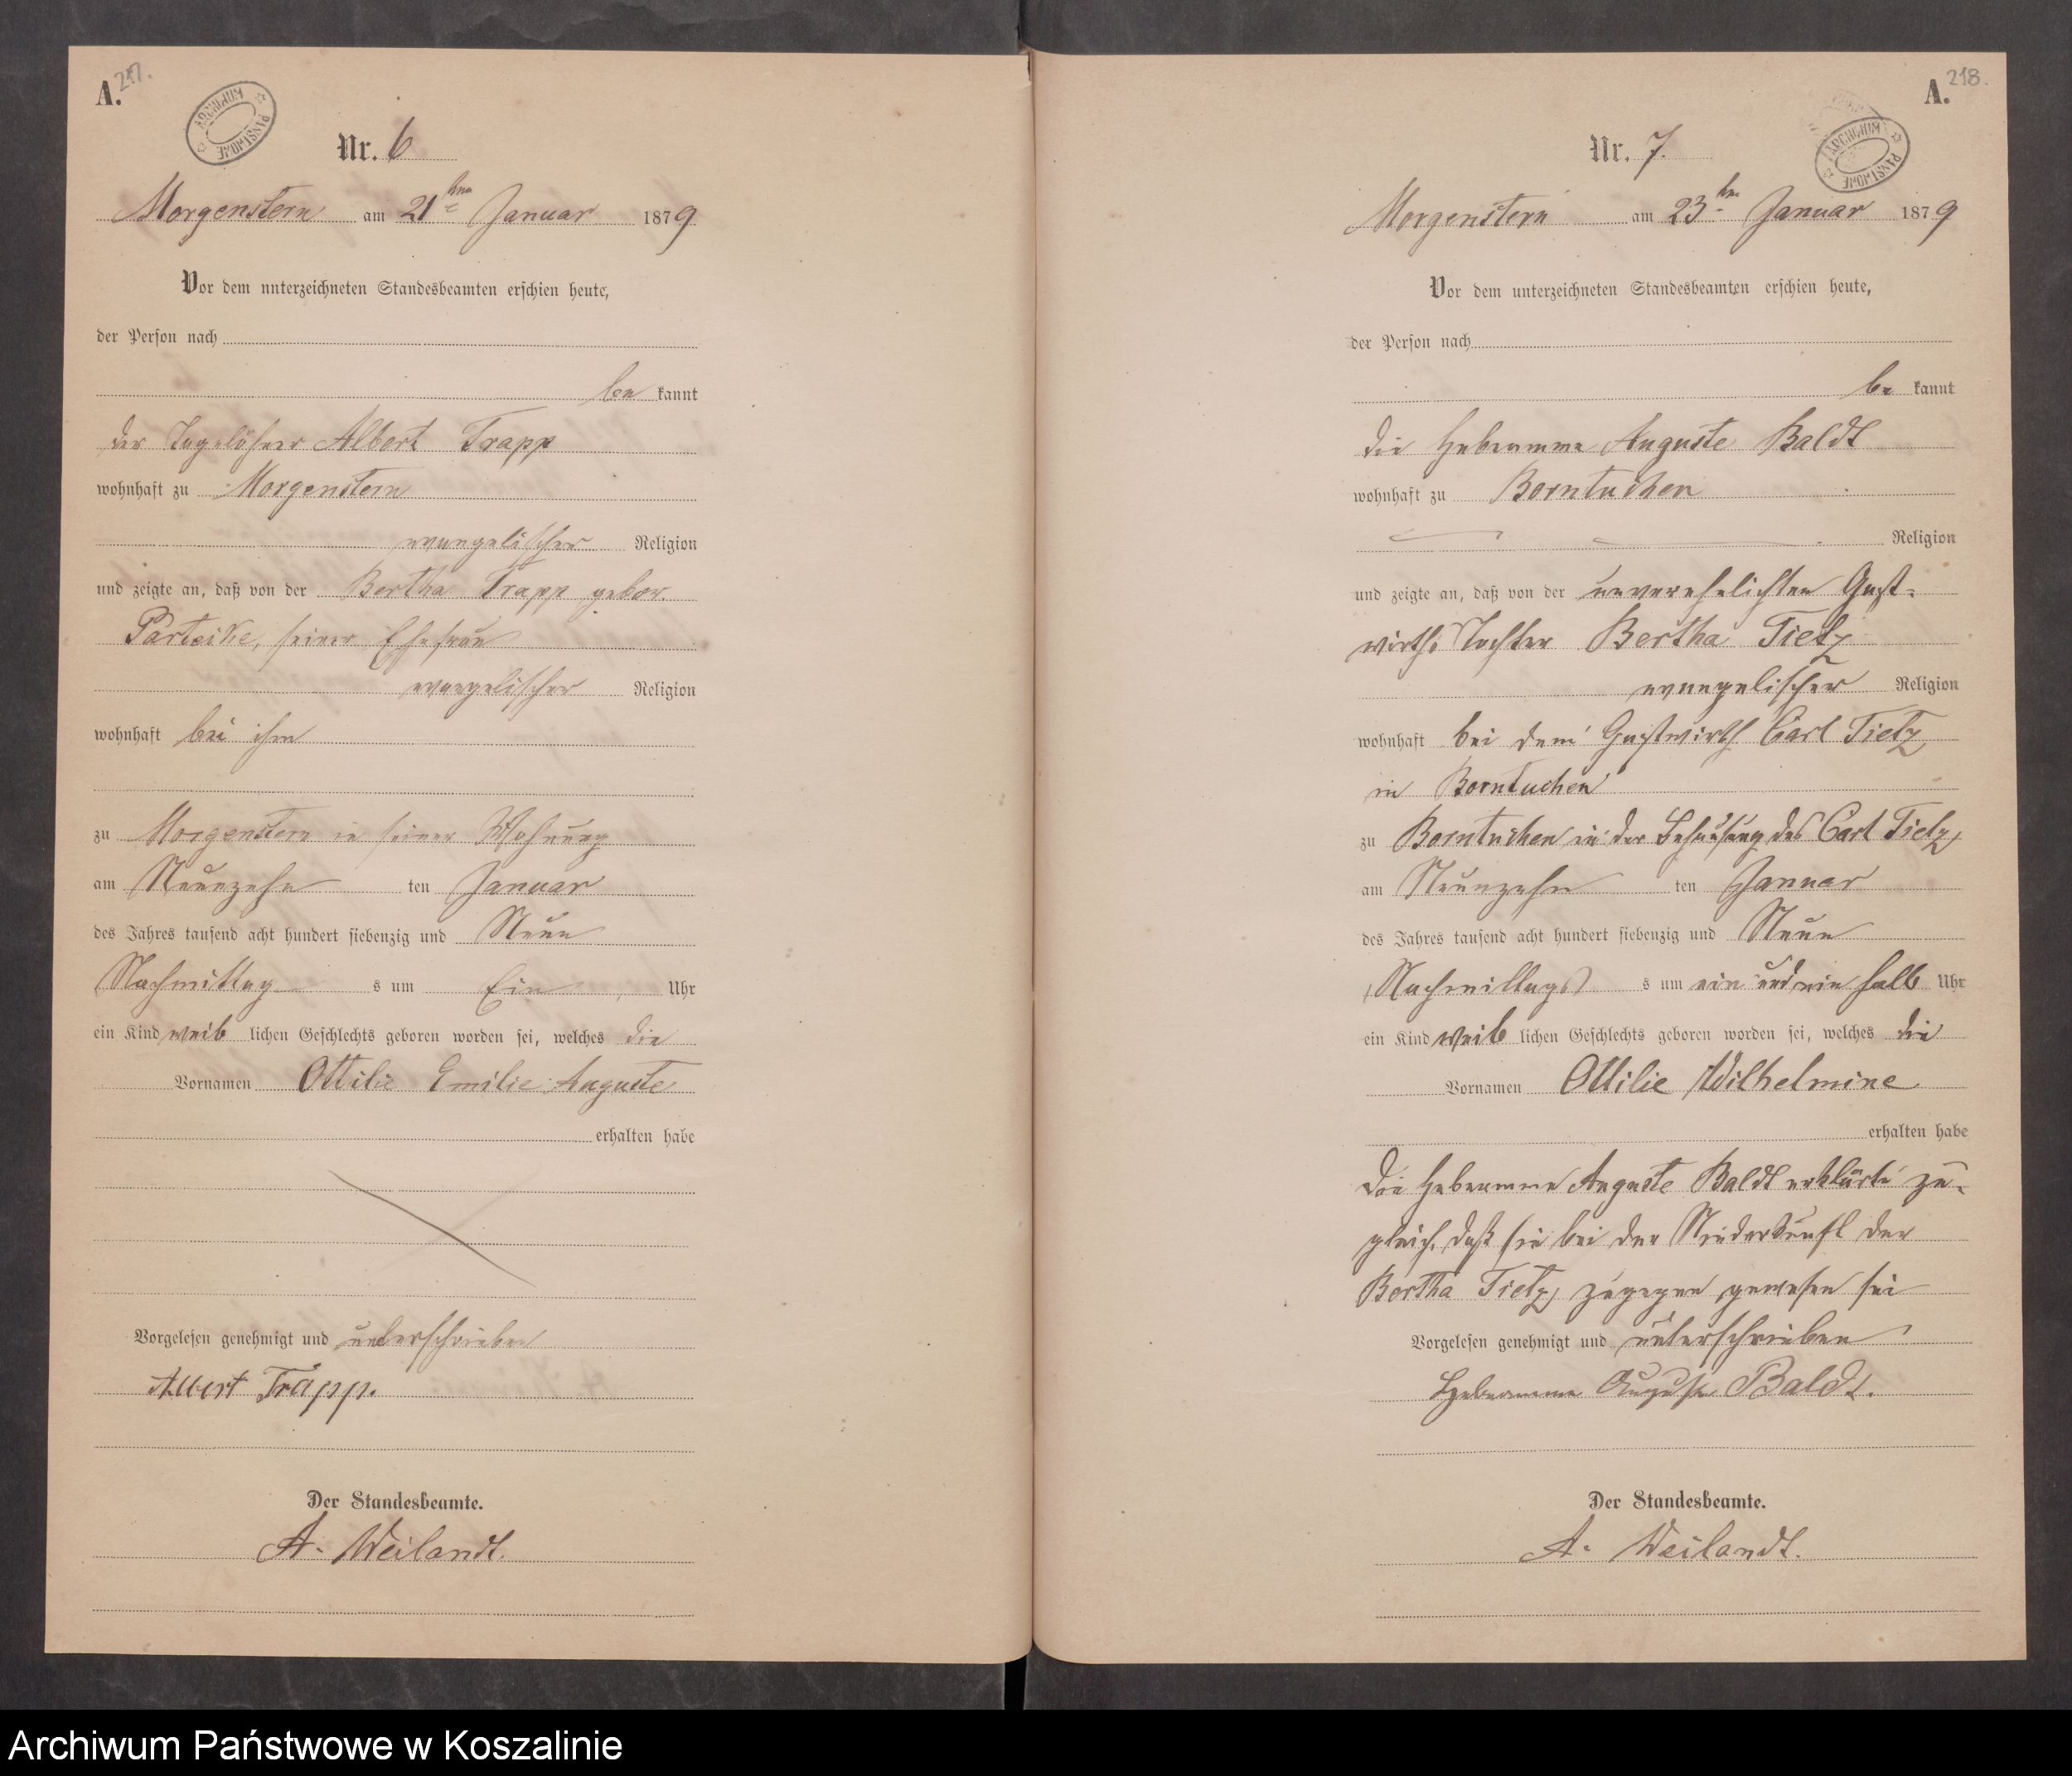 A. 217.
ARCHIWUM PAŃSTWOWE
Nr. 6
Morgenstern am 21ten Januar 1879
Vor dem unterzeichneten Standesbeamten erschien heute,
der Person nach
be kannt
der Tagelöhner Albert Trapp
wohnhaft zu Morgenstern
evangelischer Religion
und zeigte an, daß von der Bertha Trapp gebor.
Parteike, seiner Ehefrau
evangelischer Religion
wohnhaft bei ihm
zu Morgenstern in seiner Wohnung
am Neunzehn ten Januar
des Jahres tausend acht hundert siebenzig und Neun
Nachmittag s um Ein Uhr
ein Kind weib lichen Geschlechts geboren worden sei, welches die
Vornamen Ottilie Emilie Auguste
erhalten habe
Vorgelesen genehmigt und unterschrieben
Albert Trapp.
Der Standesbeamte.
A. Weilandt.
A. 218.
ARCHIWUM PAŃSTWOWE
Nr. 7.
Morgenstern am 23ten Januar 1879
Vor dem unterzeichneten Standesbeamten erschien heute,
der Person nach
be kannt
die Hebeamme Auguste Baldt
wohnhaft zu Borntuchen
Religion
und zeigte an, daß von der unverehelichten Gast-
wirths Tochter Bertha Tietz
evangelischer Religion
wohnhaft bei dem Gastwirth Carl Tietz
in Borntuchen
zu Borntuchen in der Behausung des Carl Tietz
am Neunzehn ten Januar
des Jahres tausend acht hundert siebenzig und Neun
Nachmittags s um ein und ein halb Uhr
ein Kind weib lichen Geschlechts geboren worden sei, welches die
Vornamen Ottilie Wilhelmine
erhalten habe
Die Hebeamme Auguste Baldt erklärte zu-
gleich, daß sie bei der Niederkunft der
Bertha Tietz zugegen gewesen sei
Vorgelesen genehmigt und unterschrieben
Hebeamme Auguste Baldt.
Der Standesbeamte.
A. Weilandt.
Archiwum Państwowe w Koszalinie